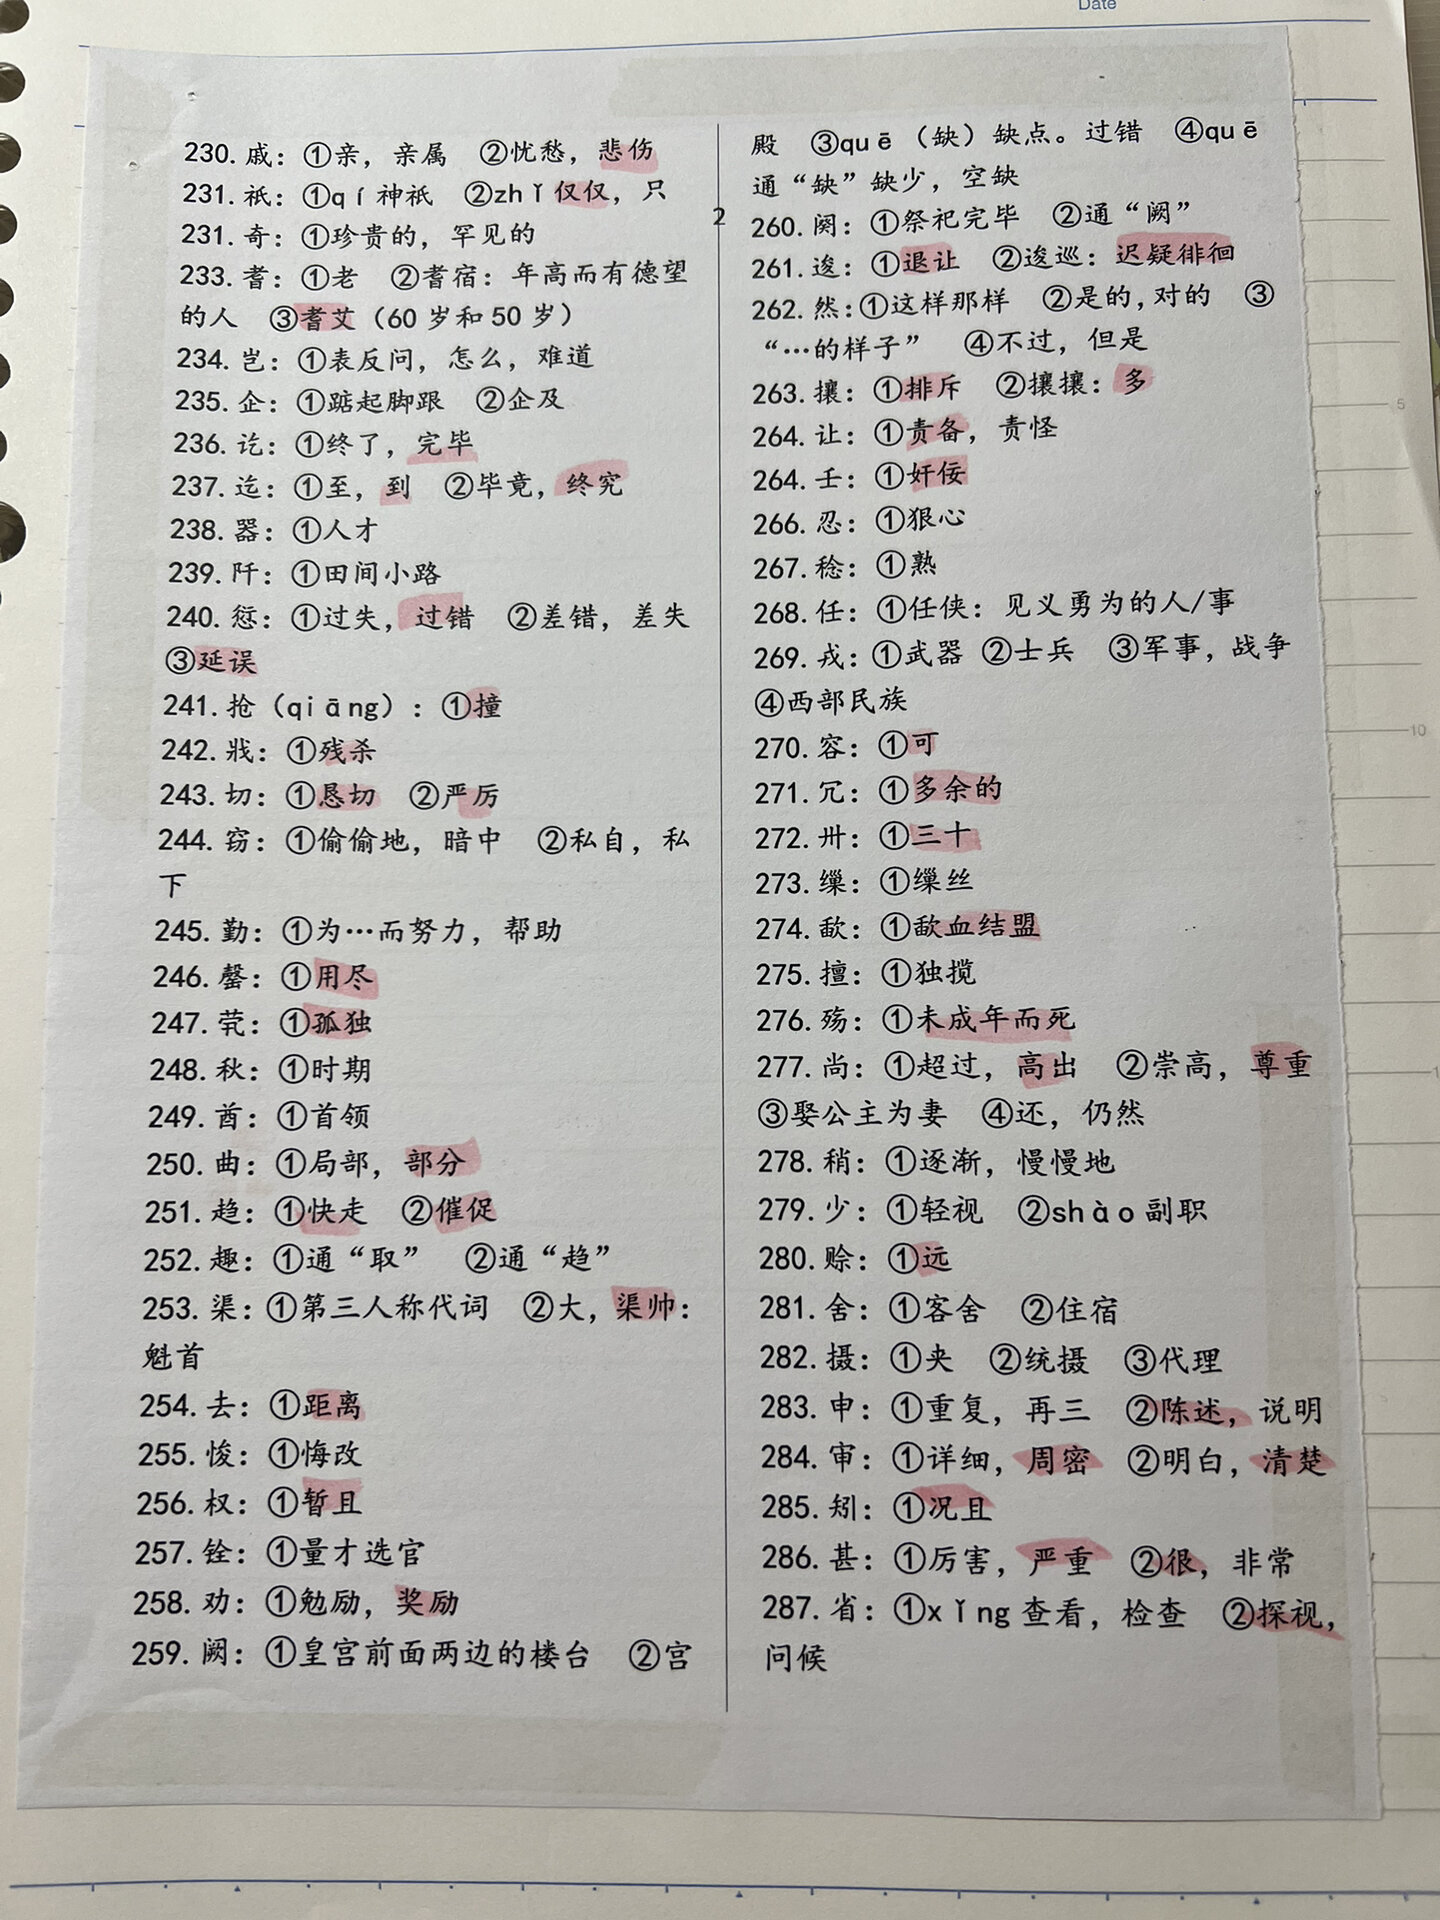 Date
230.戚：①亲，亲属　②忧愁，悲伤
231.祇：①qí神祇　②zhǐ仅仅，只
231.奇：①珍贵的，罕见的
233.耆：①老　②耆宿：年高而有德望
的人　③耆艾（60岁和50岁）
234.岂：①表反问，怎么，难道
235.企：①踮起脚跟　②企及
236.讫：①终了，完毕
237.迄：①至，到　②毕竟，终究
238.器：①人才
239.阡：①田间小路
240.愆：①过失，过错　②差错，差失
③延误
241.抢（qiāng）：①撞
242.戕：①残杀
243.切：①恳切　②严厉
244.窃：①偷偷地，暗中　②私自，私
下
245.勤：①为…而努力，帮助
246.罄：①用尽
247.茕：①孤独
248.秋：①时期
249.酋：①首领
250.曲：①局部，部分
251.趋：①快走　②催促
252.趣：①通“取”　②通“趋”
253.渠：①第三人称代词　②大，渠帅：
魁首
254.去：①距离
255.悛：①悔改
256.权：①暂且
257.铨：①量才选官
258.劝：①勉励，奖励
259.阙：①皇宫前面两边的楼台　②宫
2
殿　③quē（缺）缺点。过错　④quē
通“缺”缺少，空缺
260.阕：①祭祀完毕　②通“阙”
261.逡：①退让　②逡巡：迟疑徘徊
262.然：①这样那样　②是的，对的　③
“…的样子”　④不过，但是
263.攘：①排斥　②攘攘：多
264.让：①责备，责怪
264.壬：①奸佞
266.忍：①狠心
267.稔：①熟
268.任：①任侠：见义勇为的人/事
269.戎：①武器　②士兵　③军事，战争
④西部民族
270.容：①可
271.冗：①多余的
272.卅：①三十
273.缫：①缫丝
274.歃：①歃血结盟
275.擅：①独揽
276.殇：①未成年而死
277.尚：①超过，高出　②崇高，尊重
③娶公主为妻　④还，仍然
278.稍：①逐渐，慢慢地
279.少：①轻视　②shào副职
280.赊：①远
281.舍：①客舍　②住宿
282.摄：①夹　②统摄　③代理
283.申：①重复，再三　②陈述，说明
284.审：①详细，周密　②明白，清楚
285.矧：①况且
286.甚：①厉害，严重　②很，非常
287.省：①xǐng查看，检查　②探视，
问候
5
10